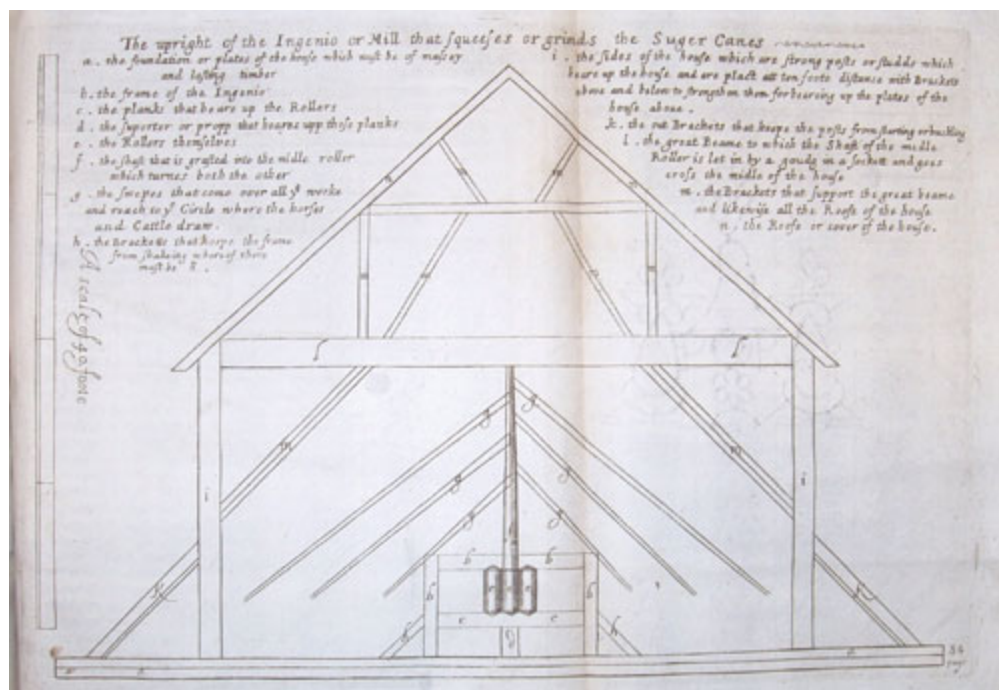 The upright of the Ingenio or Mill that squeeses or grinds the Suger Canes
a. the foundation or plates of the house which must be of massey
and lasting timber
b. the frame of the Ingenio
c. the planks that beare up the Rollers
d. the suporter or propp that beares upp those planks
e. the Rollers themselves
f. the shaft that is grafted into the midle roller
which turnes both the other
g. the swepes that come over all yͤ worke
and reach to yͤ Circle where the horses
and Cattle draw.
h. the Bracketts that keepe the frame
from shakeing whereof there
must be 8.
A scale of 40 foote
i. the sides of the house which are strong posts or studds which
beare up the house and are plact att ten foote distance with Brackets
above and below to strengthen them for bearing up the plates of the
house above.
k. the out Brackets that keepe the posts from starting or buckling
l. the great Beame to which the Shaft of the midle
Roller is let in by a goudg in a sockett and goes
cross the midle of the house
m. the Brackets that support the great beame
and likewise all the Roofe of the house
n. the Roofe or cover of the house.
n m m n
m m
l l
g g
m g g m
i g g i
f
b b
k b b k
e e e
c c
h d h
a a a
84
pag: